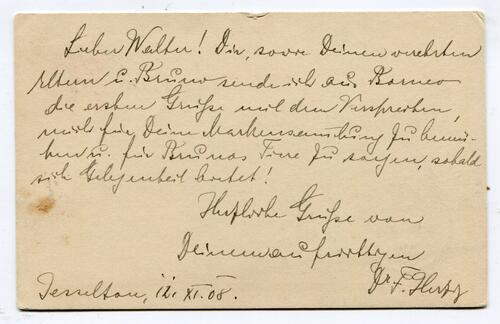 Lieber Walter! Dir, sowie Deinen verehrten
Eltern u. Bruno sende ich aus Borneo
die ersten Grüße mit dem Versprechen,
mich für Deine Markensammlung zu bemü-
hen u. für Brunos Tiere zu sorgen, sobald
sich Gelegenheit bietet!
Herzliche Grüße von
Deinem aufrichtigen
Dr. F. Hertz
Jesselton, 12. XI. 08.